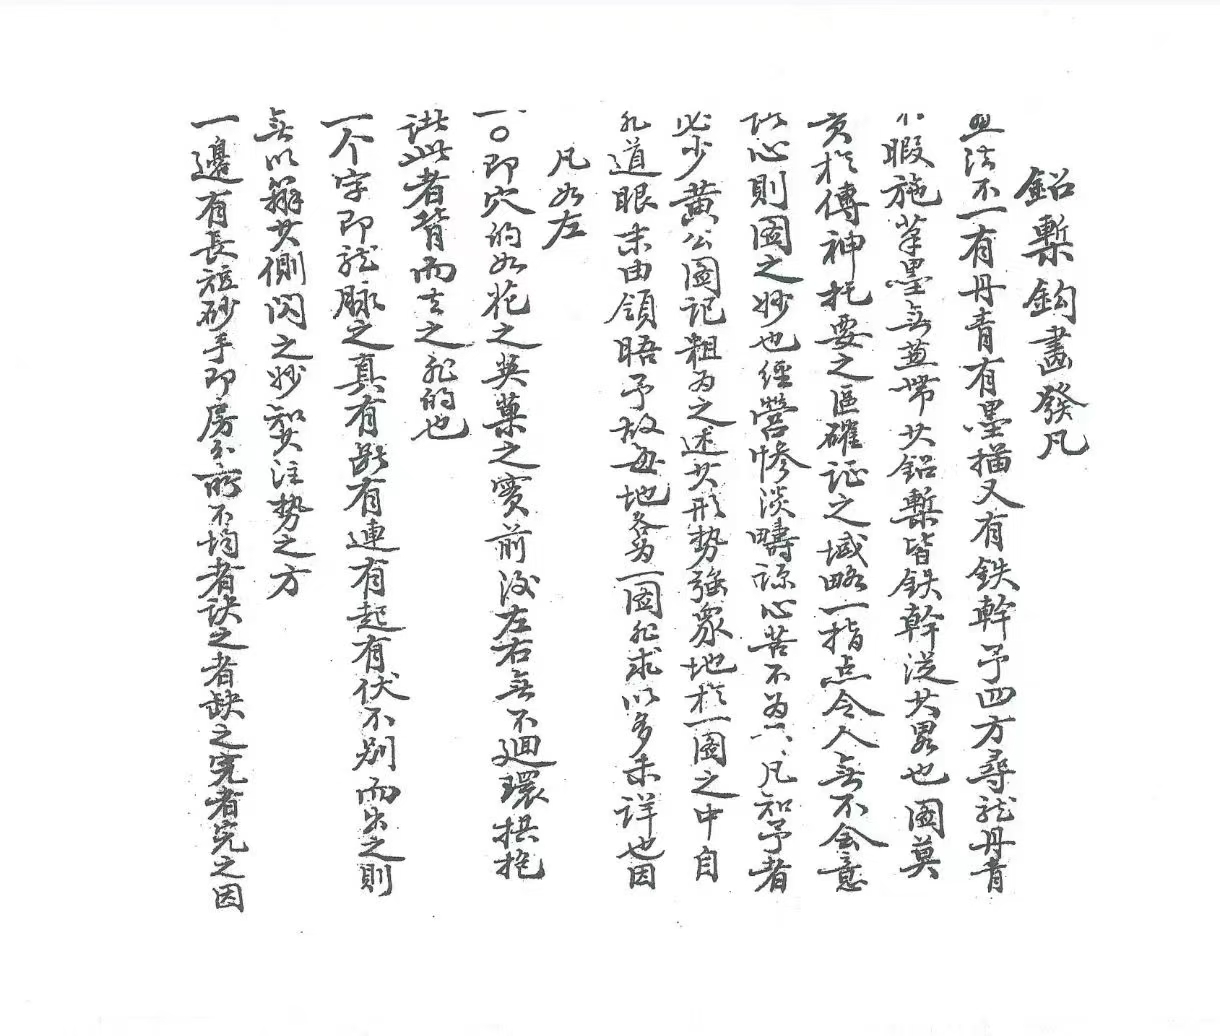 鉛槧鈎畫發凡
法不一有丹青有墨描又有鉄幹予四方尋龍丹青
不暇施筆墨無並帶其鉛槧皆鉄幹從其畧也圖莫
貴於傳神扼要之區確证之域略一指点令人無不会意
心則圖之妙也經營惨淡疇諒心苦不為凡知予者
必少黄公圖記粗为之述其形势強衆地於一圖之中自
非道眼未由領晤予故每地各为一圖非求以多未详也因
凡如左
一〇即穴的如花之英菓之實前後左右無不廻環拱抱
此者背而去之非的也
一个字即龍脉之真有断有連有起有伏不别而失之則
無以其側闪之妙知其注势之方
一邊有長短砂手即房分所不均者缺之者缺之完者完之因